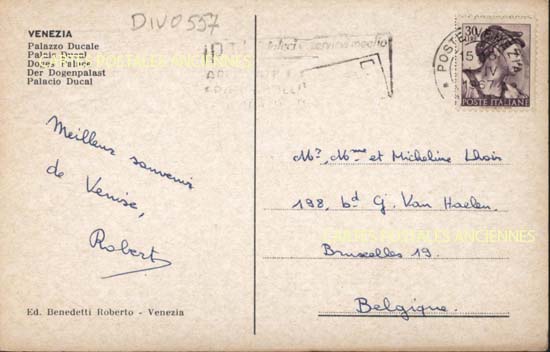 DIV0557
VENEZIA
Palazzo Ducale
Palais Ducal
Doges Palace
Der Dogenpalast
Palacio Ducal
30
POSTE VENEZIA
15
1967
POSTE ITALIANE
Meilleur souvenir
de Venise,
Robert
Mr, Mme et Micheline
198, bd G. Van Haelen
Bruxelles 19.
Belgique.
CARTES POSTALES ANCIENNES
CARTES POSTALES ANCIENNES
Ed. Benedetti Roberto - Venezia